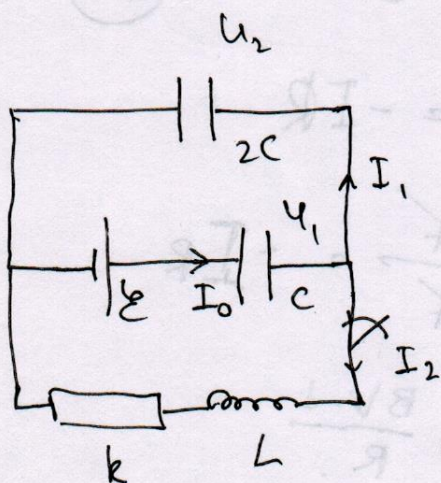 U₂
2C
I₁
U₁
ℰ
I₀
C
I₂
R
L